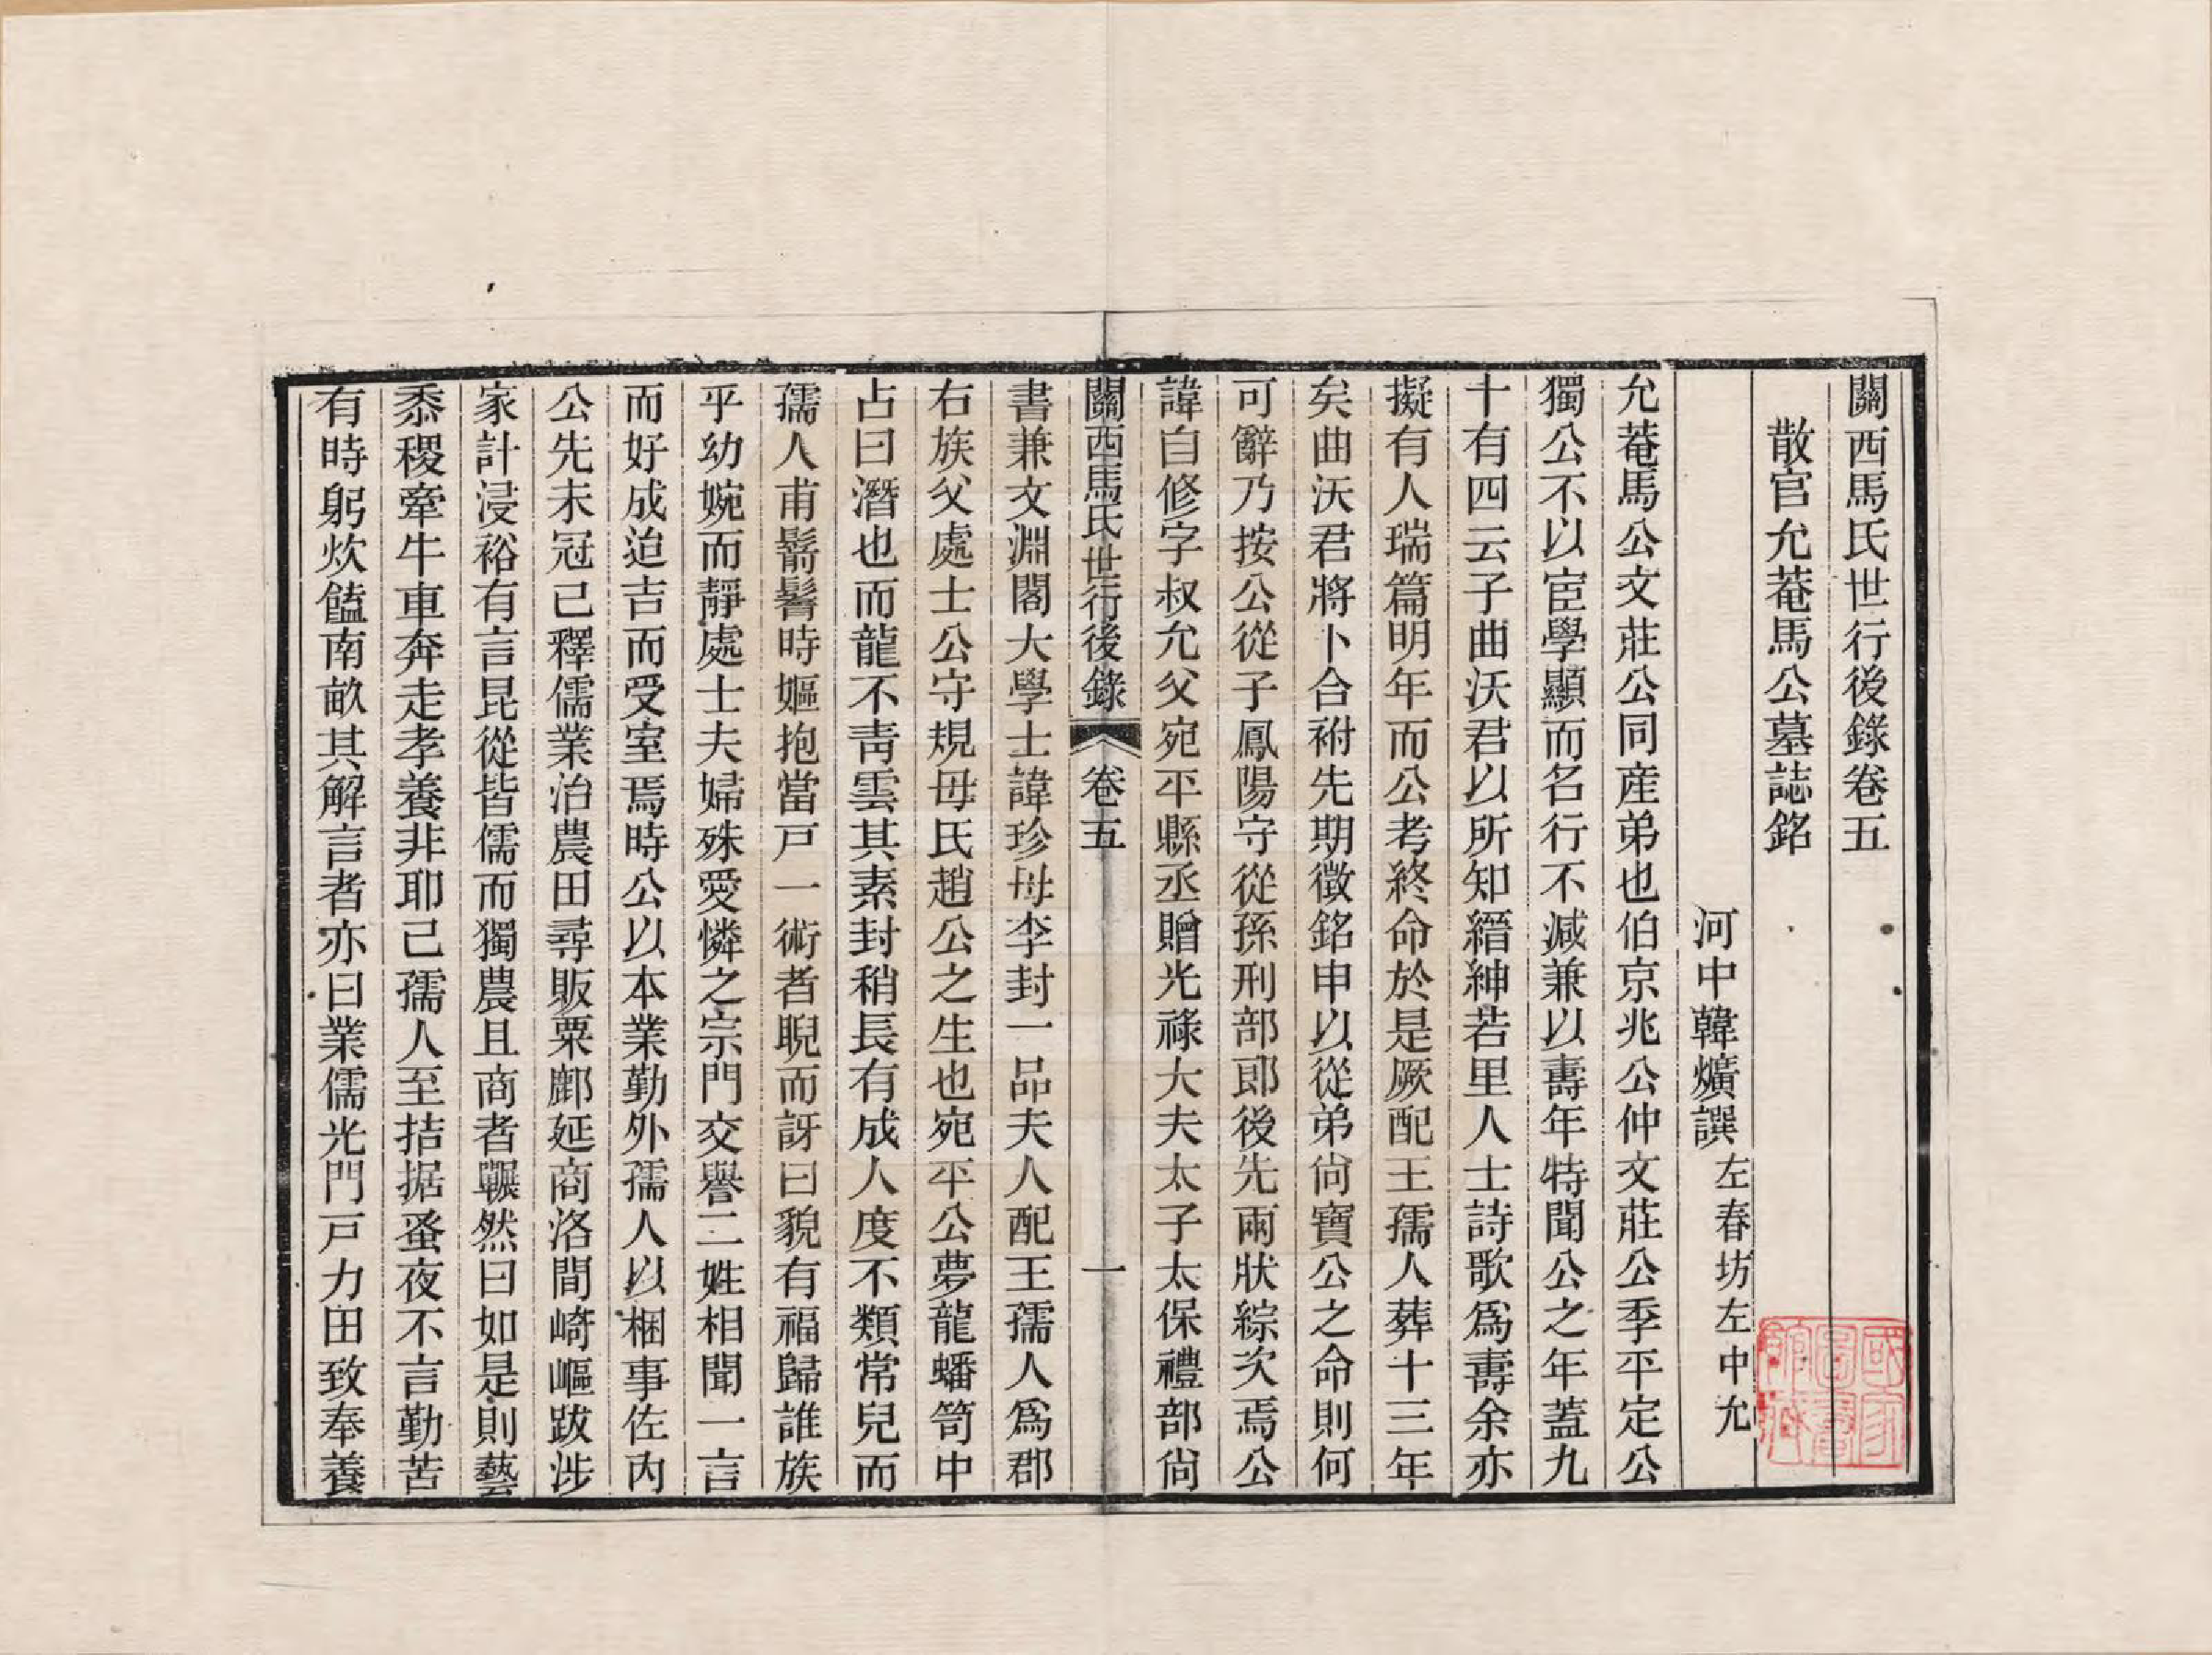 關西馬氏世行後錄卷五
散官允菴馬公墓誌銘
河中韓爌譔左春坊左中允
允菴馬公文莊公同産弟也伯京兆公仲文莊公季平定公
獨公不以宦學顯而名行不減兼以壽年特聞公之年蓋九
十有四云子曲沃君以所知縉紳若里人士詩歌爲壽余亦
擬有人瑞篇明年而公考終命於是厥配王孺人葬十三年
矣曲沃君將卜合祔先期徵銘申以從弟尙寶公之命則何
可辭乃按公從子鳳陽守從孫刑部郎後先兩狀綜次焉公
諱自修字叔允父宛平縣丞贈光祿大夫太子太保禮部尙
關西馬氏世行後錄 卷五 一
書兼文淵閣大學士諱珍母李封一品夫人配王孺人爲郡
右族父處士公守規母氏趙公之生也宛平公夢龍蟠笥中
占曰潛也而龍不靑雲其素封稍長有成人度不類常兒而
孺人甫鬋鬌時嫗抱當戸一術者睨而訝曰貌有福歸誰族
乎幼婉而靜處士夫婦殊愛憐之宗門交譽二姓相聞一言
而好成迨吉而受室焉時公以本業勤外孺人以梱事佐内
公先未冠已釋儒業治農田尋販粟鄜延商洛間崎嶇跋涉
家計浸裕有言昆從皆儒而獨農且商者囅然曰如是則藝
黍稷牽牛車奔走孝養非耶已孺人至拮据蚤夜不言勤苦
有時躬炊饁南畝其解言者亦曰業儒光門戸力田致奉養
國家圖書館藏